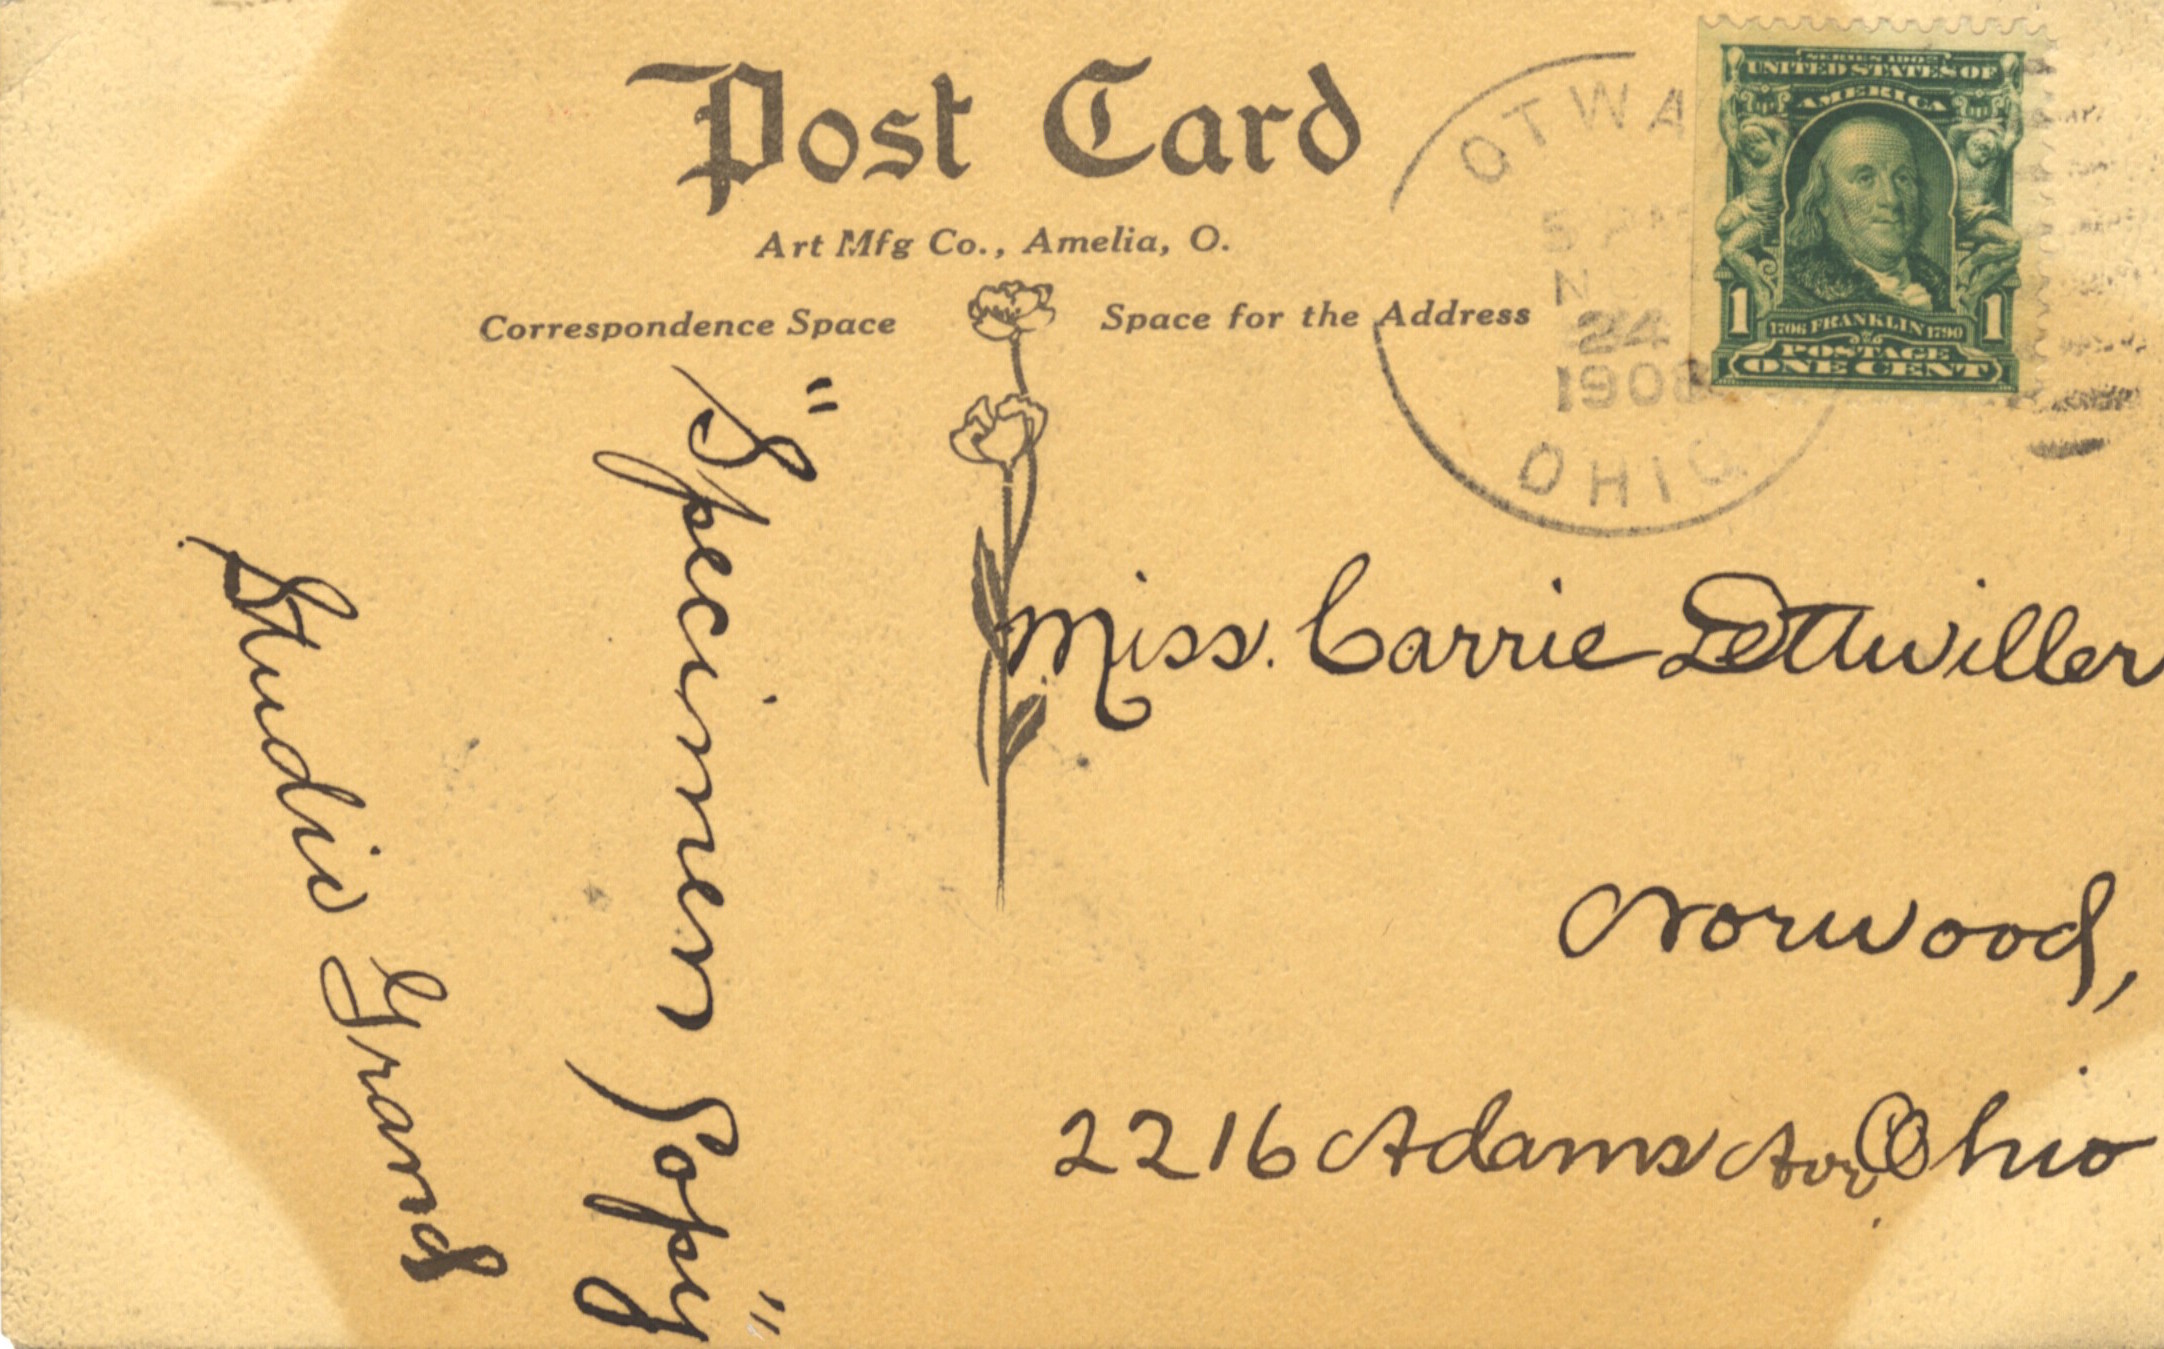 Post Card
Art Mfg Co., Amelia, O.
Correspondence Space
Space for the Address
OTWA
5
N
24
1908
OHIO
SERIES 1902
UNITED STATES OF
AMERICA
1
1706 FRANKLIN 1790
1
POSTAGE
ONE CENT
"Specimen Copy"
Studio Grand
Miss. Carrie Dettwiller
Norwood,
2216 Adams Av, Ohio